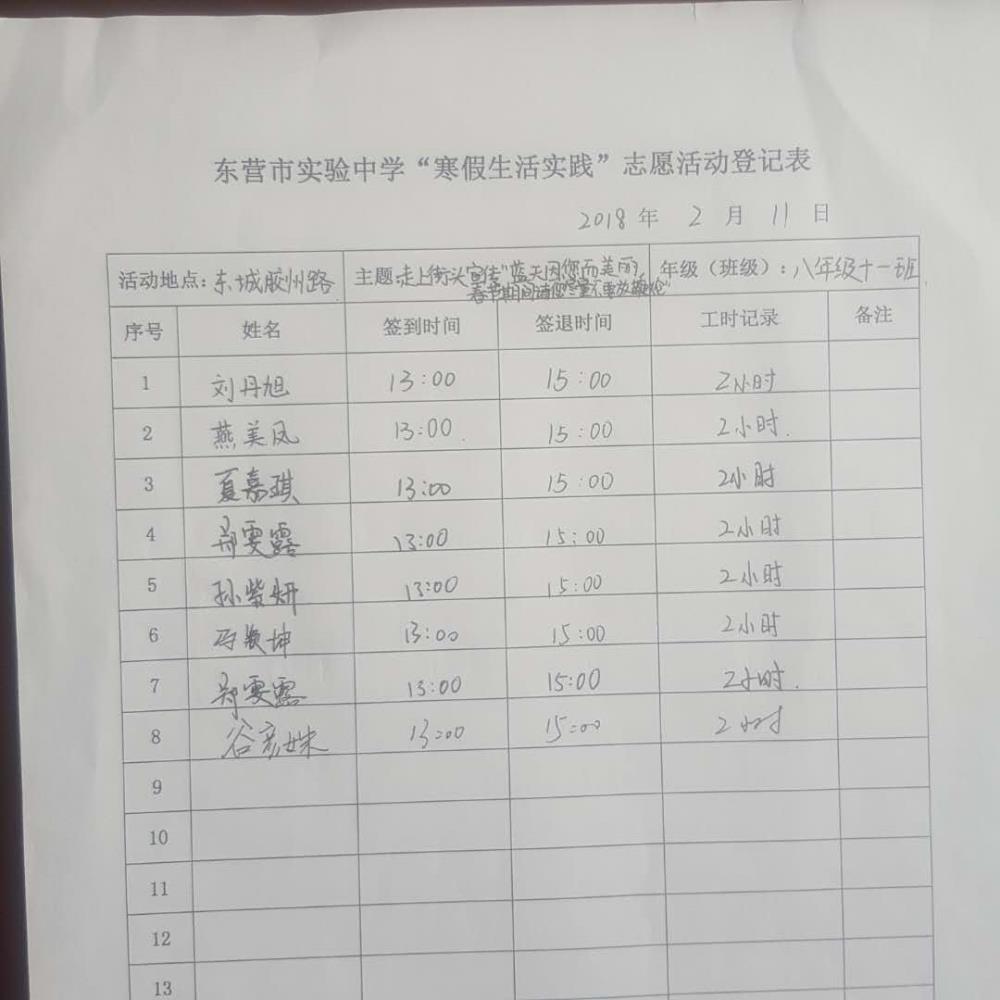 东营市实验中学“寒假生活实践”志愿活动登记表
2018 年 2 月 11 日
活动地点：东城胶州路 主题：走上街头宣传"蓝天因您而美丽， 年级（班级）：八年级十一班
春节期间请您尽量不要放鞭炮"
序号 姓名 签到时间 签退时间 工时记录 备注
1 刘丹旭 13:00 15:00 2小时
2 燕美凤 13:00 15:00 2小时.
3 夏嘉琪 13:00 15:00 2小时
4 郑雯露 13:00 15:00 2小时
5 孙紫妍 13:00 15:00 2小时
6 坤 13:00 15:00 2小时
7 郑雯露 13:00 15:00 2小时.
8 谷彦姝 13:00 15:00 2小时
9
10
11
12
13